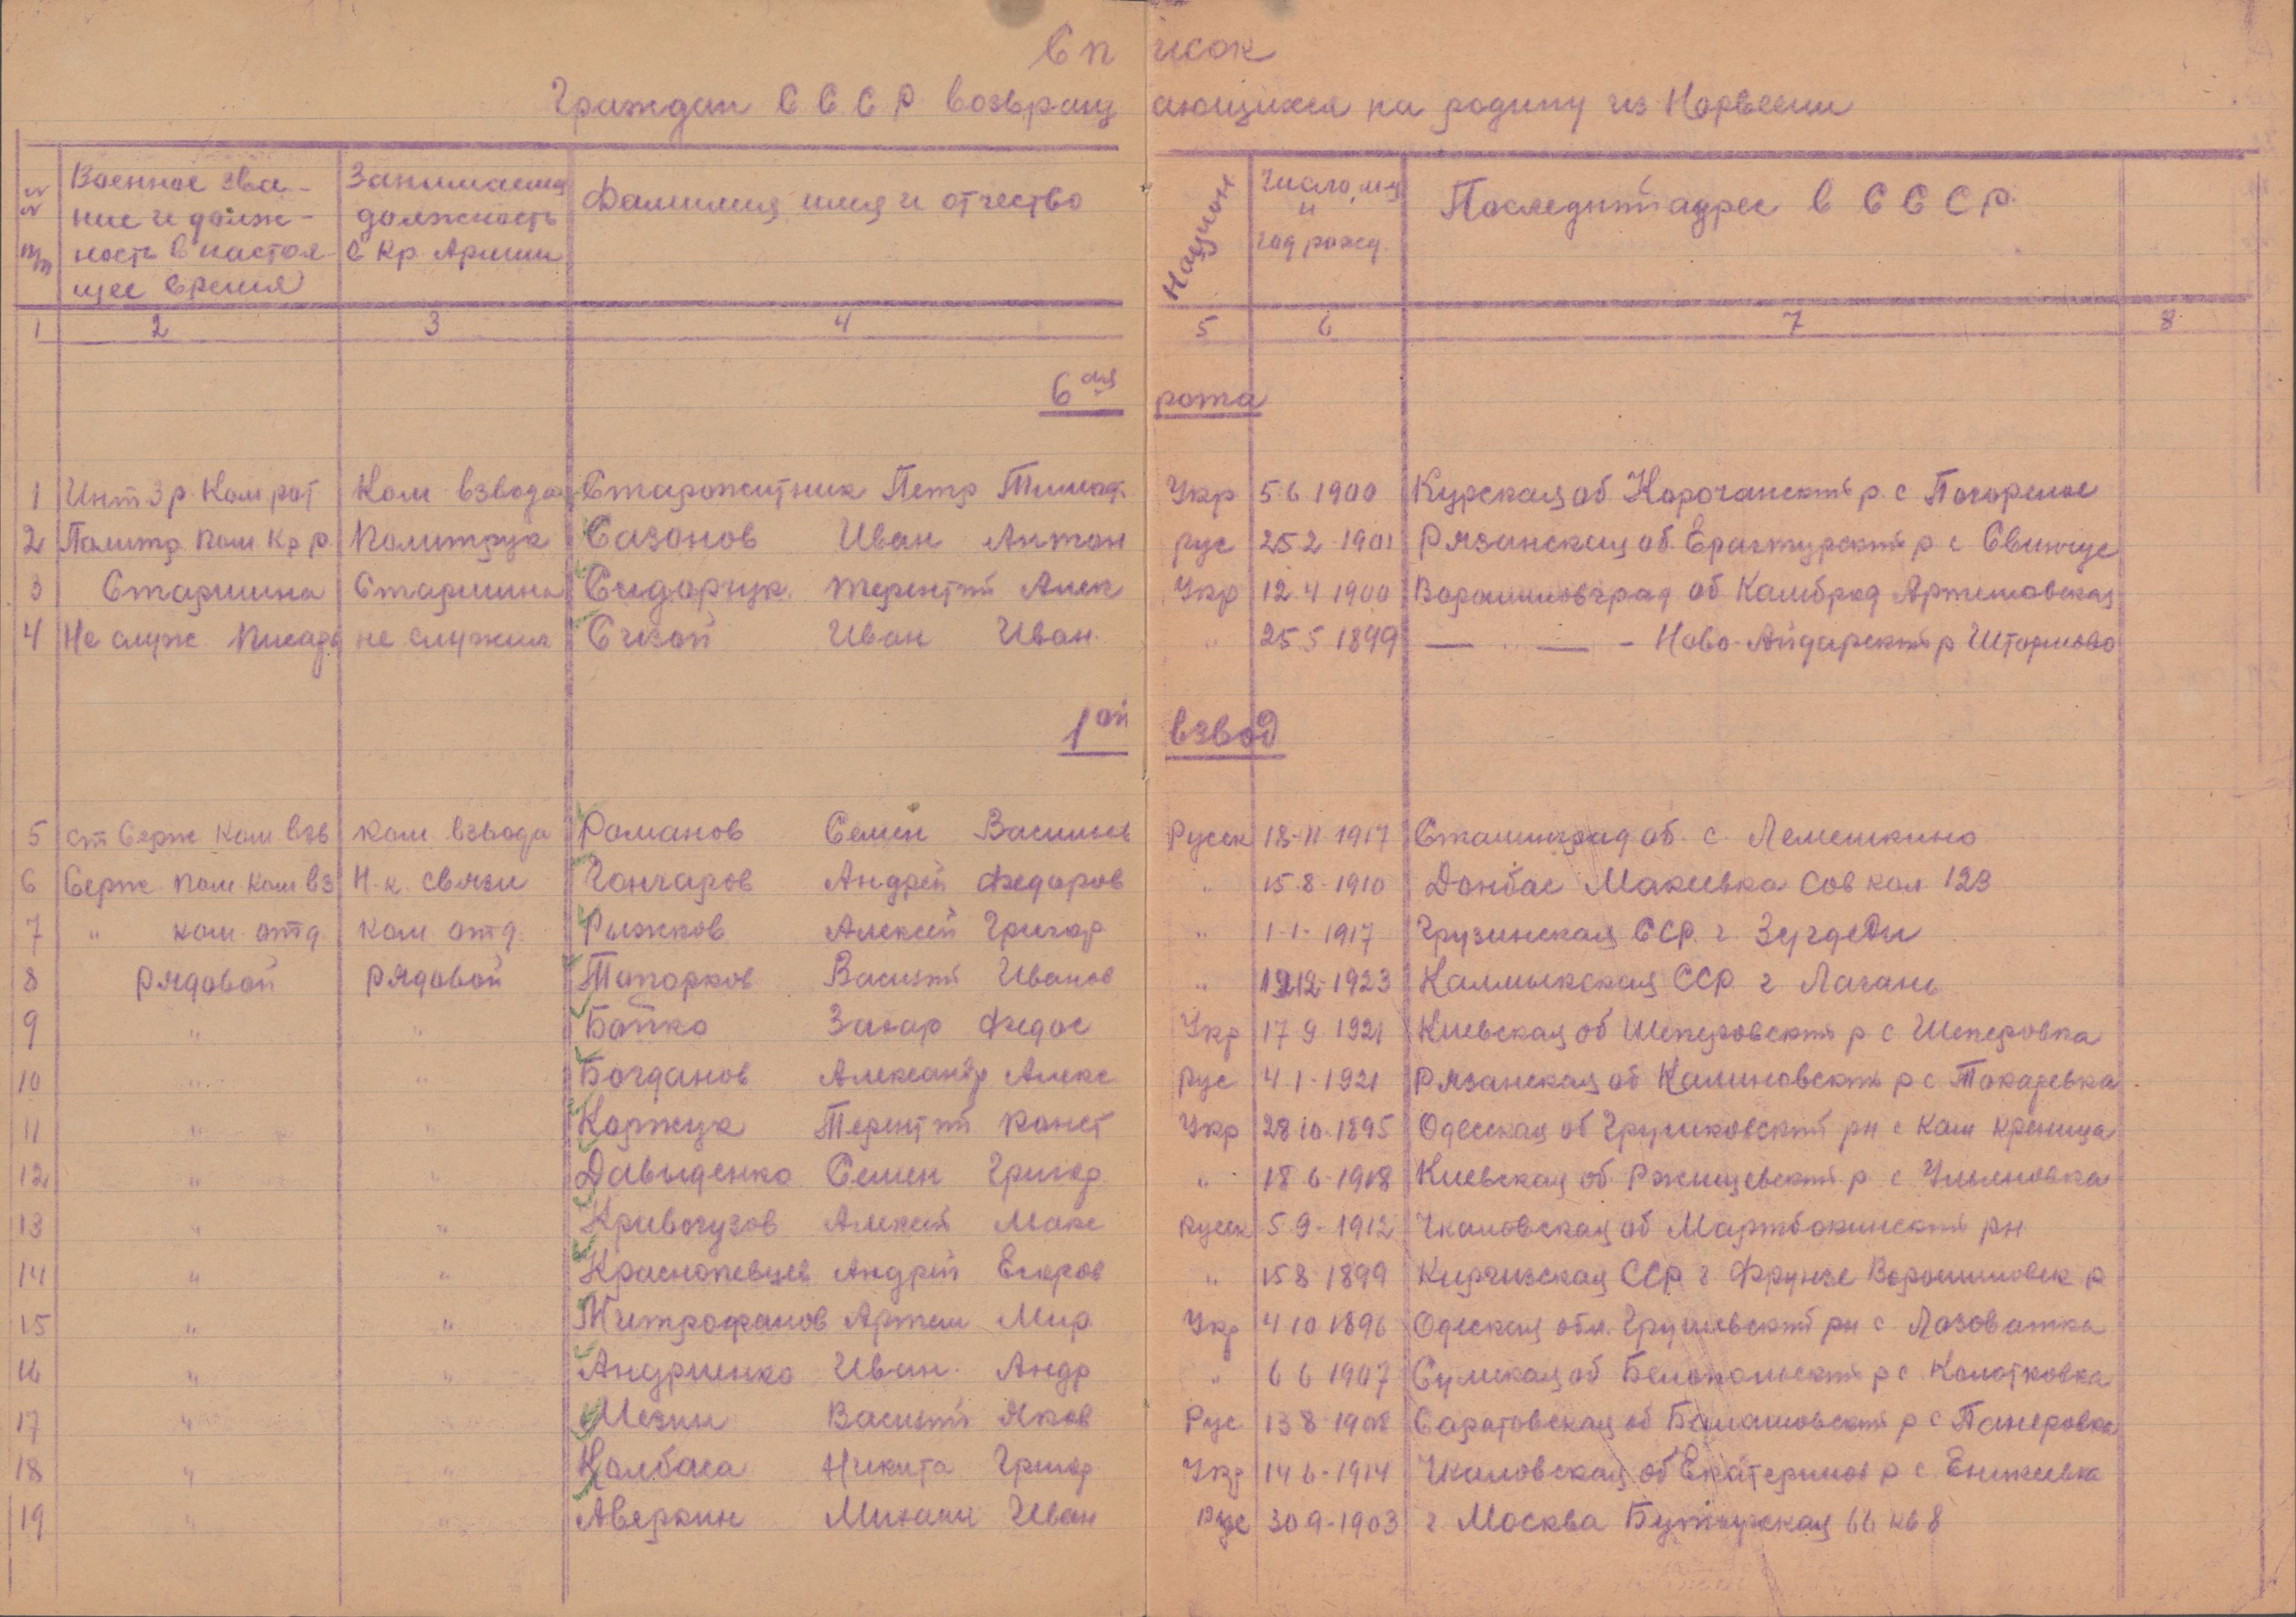 Список
Граждан С С С Р возвращающихся на родину из Норвегии
№№ п/п Военное зва- Занимаемая Фамилия имя и отчество Национ Число, м-ц Последний адрес в С С С Р.
ние и долж- должность и
ность в настоя- в Кр. Армии год рожд.
щее время
1 2 3 4 5 6 7 8
6ая рота
1 Инт 3 р. Ком рот Ком взвода Старожитник Петр Тимоф. Укр 5 6 1900 Курская об Корочанский р. с Погорелое
2 Политр. пом. к р р. Политрук Сазонов Иван Антон рус 25 2 1901 Рязанская об. Ерахтурский р с Свинчус
3 Старшина Старшина Сидорчук Терентий Алек Укр 12 4 1900 Ворошиловград об Камброд Артемовская
4 Не служ. писарь не служил Сизой Иван Иван. " 25 5 1899 — " — - Ново-Айдарский р Штормово
1ый взвод
5 ст Серж Ком взв ком. взвода Романов Семен Василь Русск 18-11 1917 Сталинград об. с. Лемешкино
6 Серж пом ком вз Н-к. связи Гончаров Андрей Федоров " 15.8-1910 Донбас Макеевка Сов кол 123
7 " ком. отд. ком отд. Рыжков Алексей Григор " 1-1-1917 Грузинская ССР. г. Зугдеди
8 рядовой рядовой Топорков Василий Иванов " 1912-1923 Калмыкская ССР г Лагань
9 " " Бойко Захар Федос Укр 17 9 1921 Киевская об р с
10 " " Богданов Александр Алекс Рус 4 1-1921 Рязанская об Калиновский р с Токаревка
11 " " Коржук Терентий Конст Укр 28 10.1895 Одесская об Грушковский рн с Кам криница
12 " " Давыденко Семен Григор " 18 6-1918 Киевская об. Ржищевский р с Ульяновка
13 " " Кривогузов Алексей Макс Русск 5 9-1912 Чкаловская об рн
14 " " Краснопевцев Андрей Егоров " 15 8 1899 Киргизская ССР г Фрунзе Ворошиловск р
15 " " Митрофанов Артем Мир Укр 4 10 1896 Одеская обл. Грушевский рн с Лозоватка
16 " " Андриенко Иван. Андр " 6 6 1907 Сумская об Белопольский р с.
17 " " Мезин Василий Яков Рус 13 8 1908 Саратовская об Балашовский р с
18 " " Колбаса Никита Григор Укр 14 6-1914 Чкаловская об Екатеринов р с.
19 " " Аверкин Михаил Иван Рус 30 9-1903 г Москва Бутырская 66 кв 8